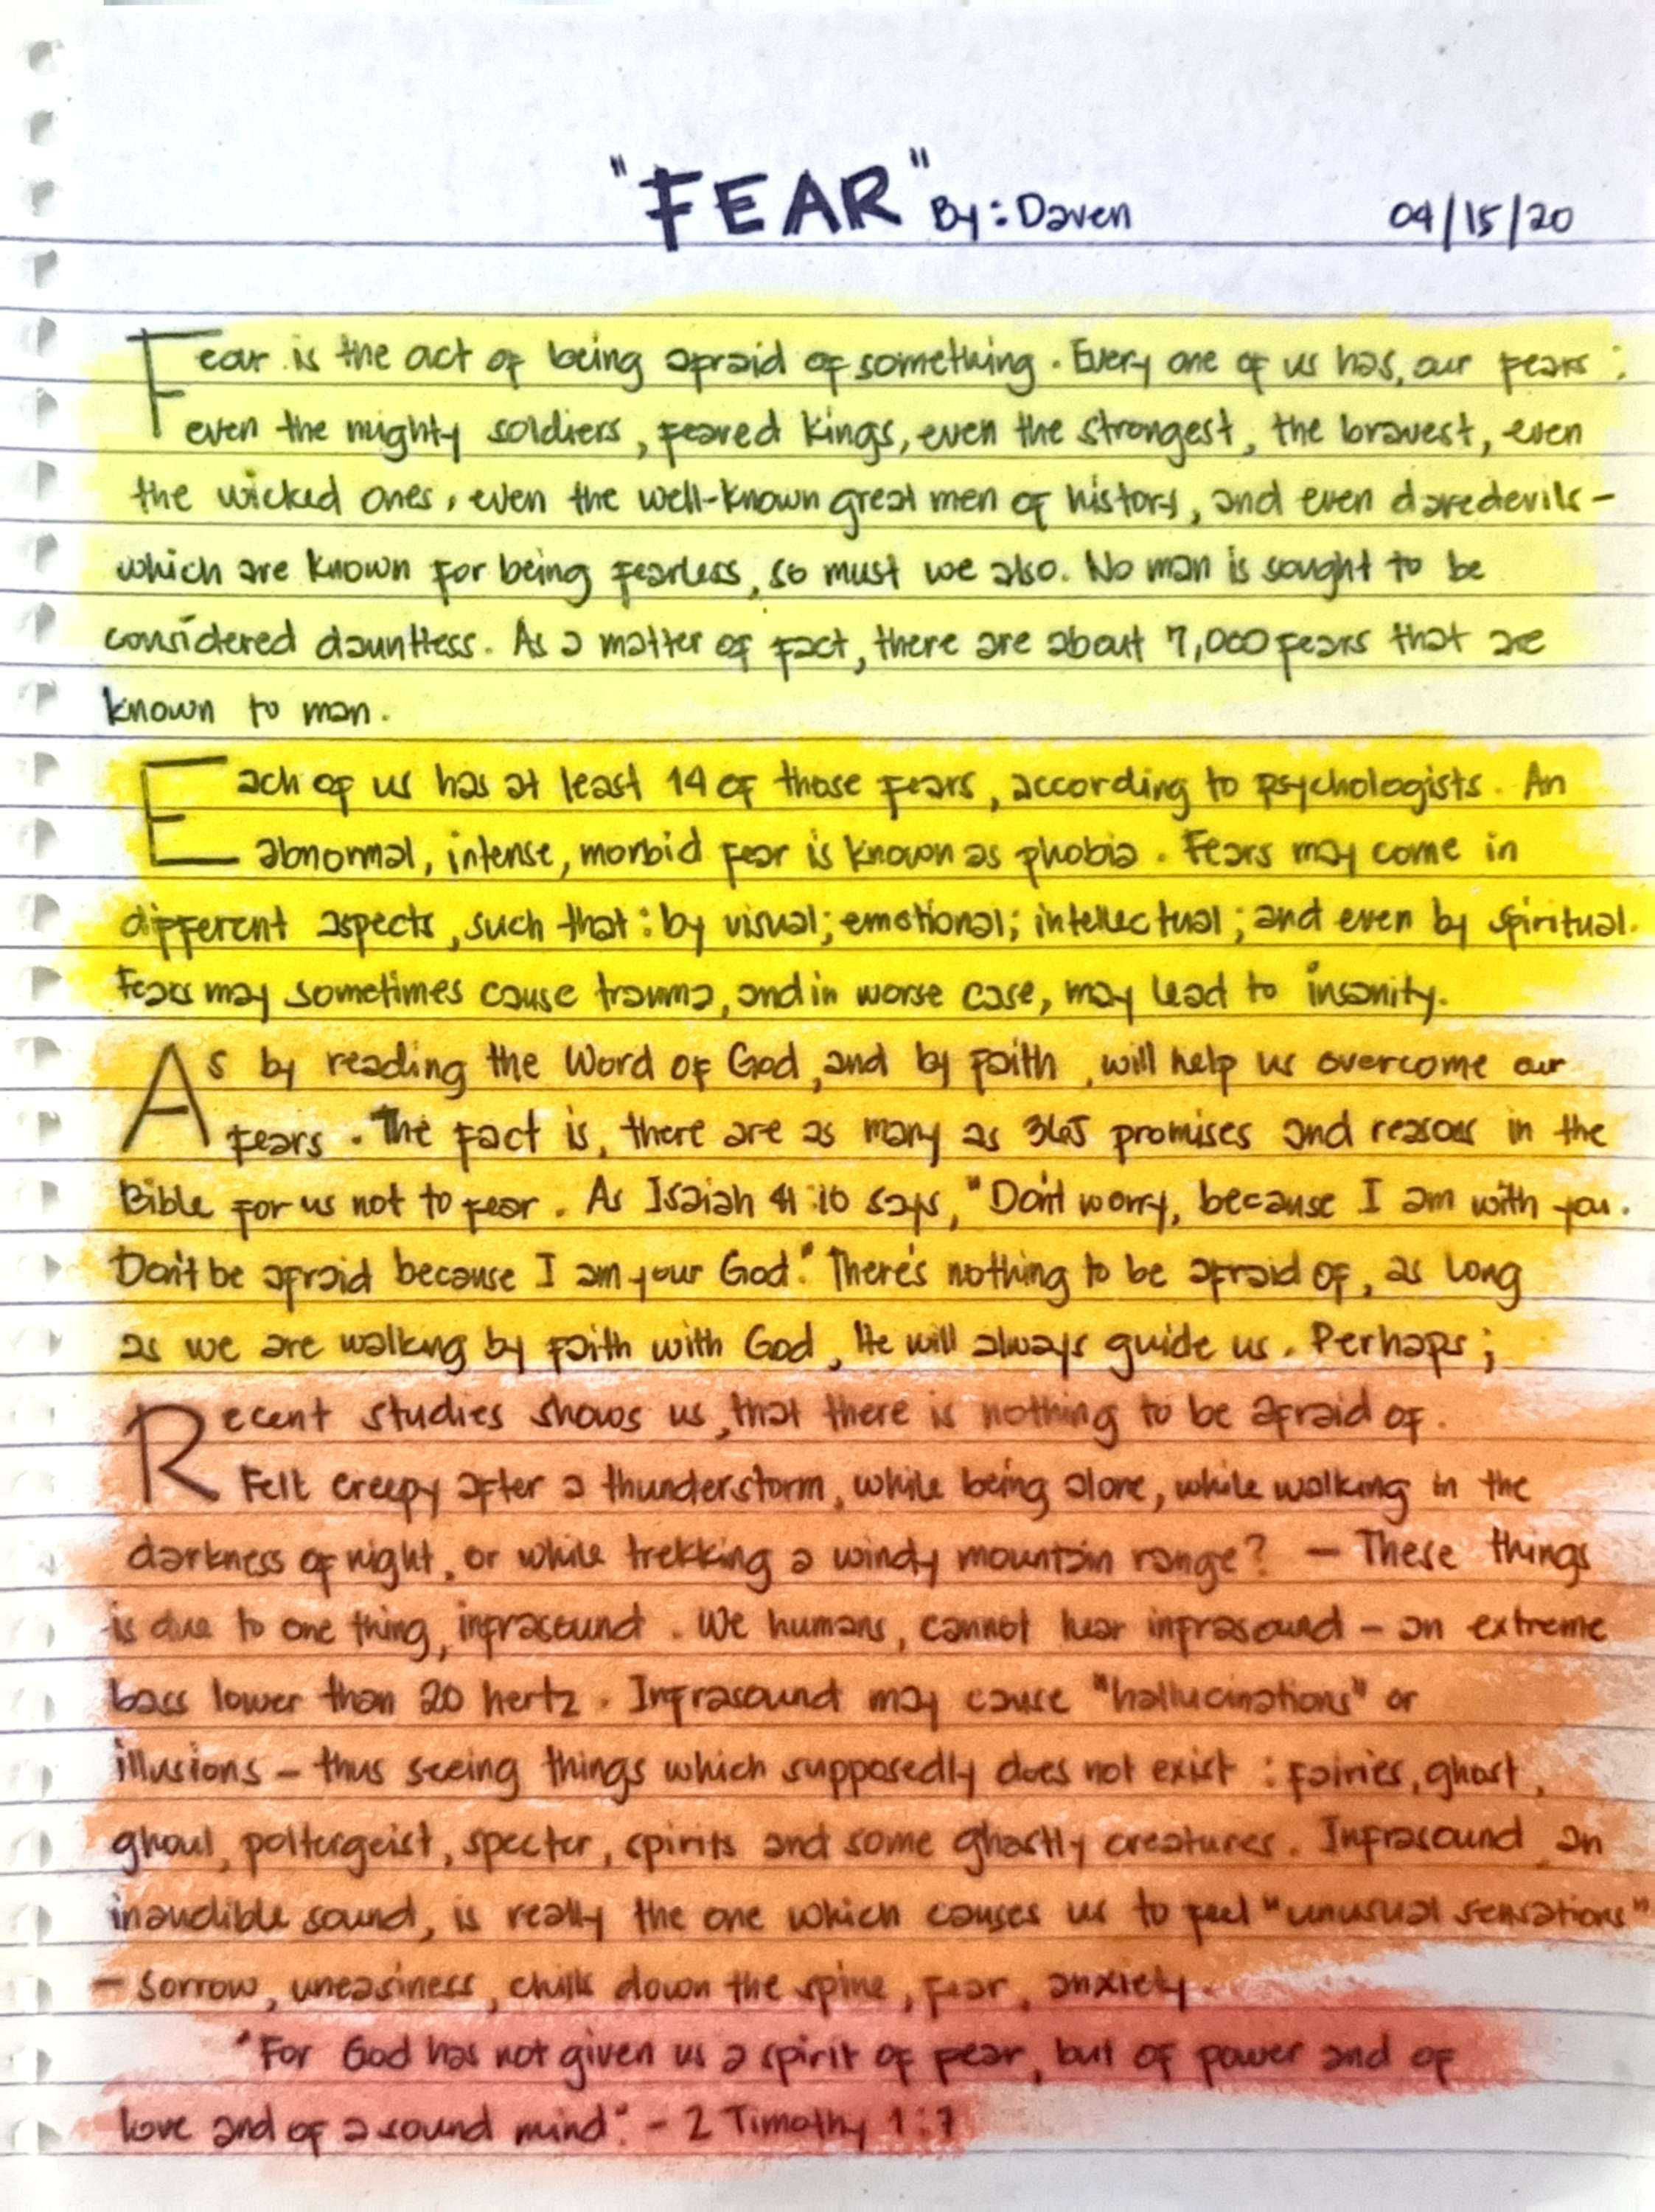 "FEAR" By: Daven 04/15/20
Fear is the act of being afraid of something. Every one of us has, our fears:
even the mighty soldiers, feared kings, even the strongest, the bravest, even
the wicked ones, even the well-known great men of history, and even daredevils-
which are known for being fearless, so must we also. No man is sought to be
considered dauntless. As a matter of fact, there are about 7,000 fears that are
known to man.
Each of us has at least 14 of those fears, according to psychologists. An
abnormal, intense, morbid fear is known as phobia. Fears may come in
different aspects, such that: by visual; emotional; intellectual; and even by spiritual.
Fears may sometimes cause trauma, and in worse case, may lead to insanity.
As by reading the Word of God, and by faith, will help us overcome our
fears. The fact is, there are as many as 365 promises and reasons in the
Bible for us not to fear. As Isaiah 41:10 says, "Don't worry, because I am with you.
Don't be afraid because I am your God." There's nothing to be afraid of, as long
as we are walking by faith with God, He will always guide us. Perhaps;
Recent studies shows us, that there is nothing to be afraid of.
Felt creepy after a thunderstorm, while being alone, while walking in the
darkness of night, or while trekking a windy mountain range? - These things
is due to one thing, infrasound. We humans, cannot hear infrasound - an extreme
bass lower than 20 hertz. Infrasound may cause "hallucinations" or
illusions - thus seeing things which supposedly does not exist: fairies, ghost,
ghoul, poltergeist, specter, spirits and some ghastly creatures. Infrasound, an
inaudible sound, is really the one which causes us to feel "unusual sensations"
- sorrow, uneasiness, chills down the spine, fear, anxiety.
"For God has not given us a spirit of fear, but of power and of
love and of a sound mind." - 2 Timothy 1:7